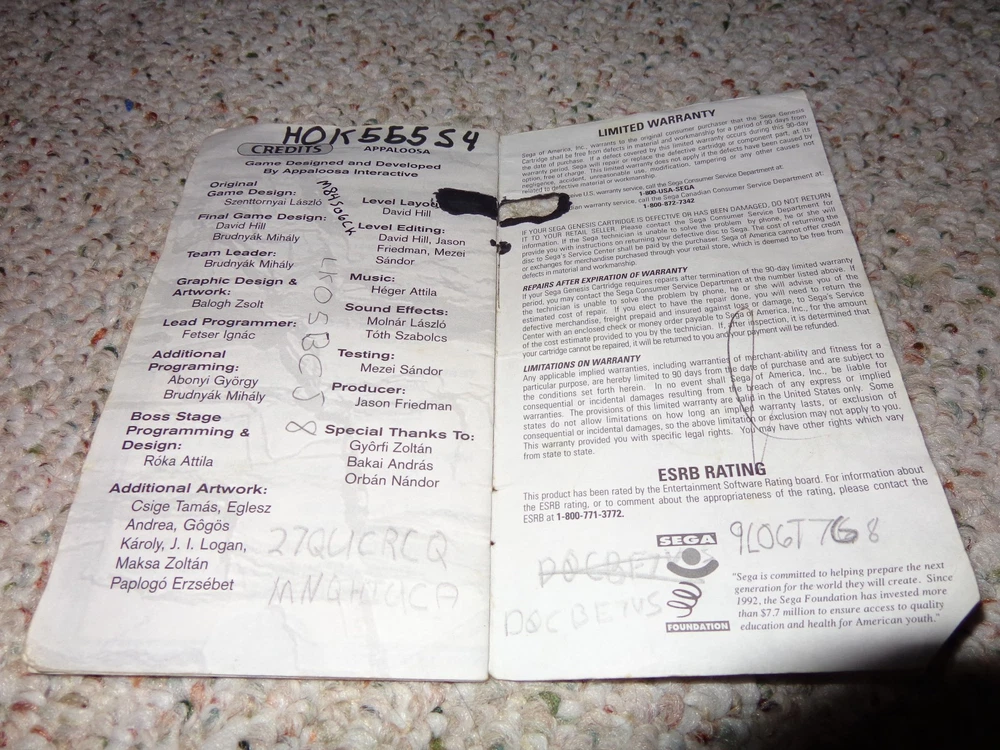 HOK555S4
CREDITS
APPALOOSA
Game Designed and Developed
By Appaloosa Interactive
Original
Game Design:
Szenttornyai László
Final Game Design:
David Hill
Brudnyák Mihály
Team Leader:
Brudnyák Mihály
Graphic Design &
Artwork:
Balogh Zsolt
Lead Programmer:
Fetser Ignác
Additional
Programing:
Abonyi György
Brudnyák Mihály
Boss Stage
Programming &
Design:
Róka Attila
Additional Artwork:
Csige Tamás, Eglesz
Andrea, Gôgös
Károly, J. I. Logan,
Maksa Zoltán
Paplogó Erzsébet
Level Layout
David Hill
Level Editing:
David Hill, Jason
Friedman, Mezei
Sándor
Music:
Héger Attila
Sound Effects:
Molnár László
Tóth Szabolcs
Testing:
Mezei Sándor
Producer:
Jason Friedman
Special Thanks To:
Gyôrfi Zoltán
Bakai András
Orbán Nándor
LIMITED WARRANTY
Sega of America, Inc., warrants to the original consumer purchaser that the Sega Genesis
Cartridge shall be free from defects in material and workmanship for a period of 90 days from
the date of purchase. If a defect covered by this limited warranty occurs during this 90-day
warranty period, Sega will repair or replace the defective cartridge or component part, at its
option, free of charge. This limited warranty does not apply if the defects have been caused by
negligence, accident, unreasonable use, modification, tampering or any other causes not
related to defective material or workmanship.
U.S. warranty service, call the Sega Consumer Service Department at:
1-800-USA-SEGA
warranty service, call the Sega Canadian Consumer Service Department at:
1-800-872-7342
IF YOUR SEGA GENESIS CARTRIDGE IS DEFECTIVE OR HAS BEEN DAMAGED, DO NOT RETURN
IT TO YOUR RETAIL SELLER. Please contact the Sega Consumer Service Department for
information. If the Sega technician is unable to solve the problem by phone, he or she will
provide you with instructions on returning your defective disc to Sega. The cost of returning the
disc to Sega's Service Center shall be paid by the purchaser. Sega of America cannot offer credit
or exchanges for merchandise purchased through your retail store, which is deemed to be free from
defects in material and workmanship.
REPAIRS AFTER EXPIRATION OF WARRANTY
If your Sega Genesis Cartridge requires repairs after termination of the 90-day limited warranty
period, you may contact the Sega Consumer Service Department at the number listed above. If
the technician is unable to solve the problem by phone, he or she will advise you of the
estimated cost of repair. If you elect to have the repair done, you will need to return the
defective merchandise, freight prepaid and insured against loss or damage, to Sega's Service
Center with an enclosed check or money order payable to Sega of America, Inc., for the amount
of the cost estimate provided to you by the technician. If, after inspection, it is determined that
your cartridge cannot be repaired, it will be returned to you and your payment will be refunded.
LIMITATIONS ON WARRANTY
Any applicable implied warranties, including warranties of merchant-ability and fitness for a
particular purpose, are hereby limited to 90 days from the date of purchase and are subject to
the conditions set forth herein. In no event shall Sega of America, Inc., be liable for
consequential or incidental damages resulting from the breach of any express or implied
warranties. The provisions of this limited warranty are valid in the United States only. Some
states do not allow limitations on how long an implied warranty lasts, or exclusion of
consequential or incidental damages, so the above limitation or exclusion may not apply to you.
This warranty provided you with specific legal rights. You may have other rights which vary
from state to state.
ESRB RATING
This product has been rated by the Entertainment Software Rating board. For information about
the ESRB rating, or to comment about the appropriateness of the rating, please contact the
ESRB at 1-800-771-3772.
SEGA
FOUNDATION
"Sega is committed to helping prepare the next
generation for the world they will create. Since
1992, the Sega Foundation has invested more
than $7.7 million to ensure access to quality
education and health for American youth."